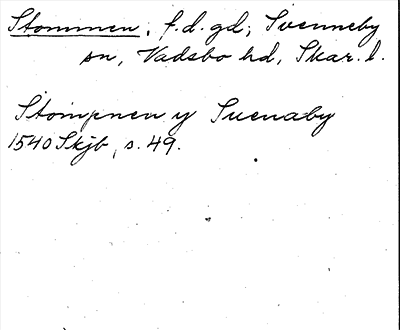 Stommen, f.d. gd; Svenneby
sn, Vadsbo hd, Skar. l.
Stompnen y Suenaby
1540 Skjb, s. 49.